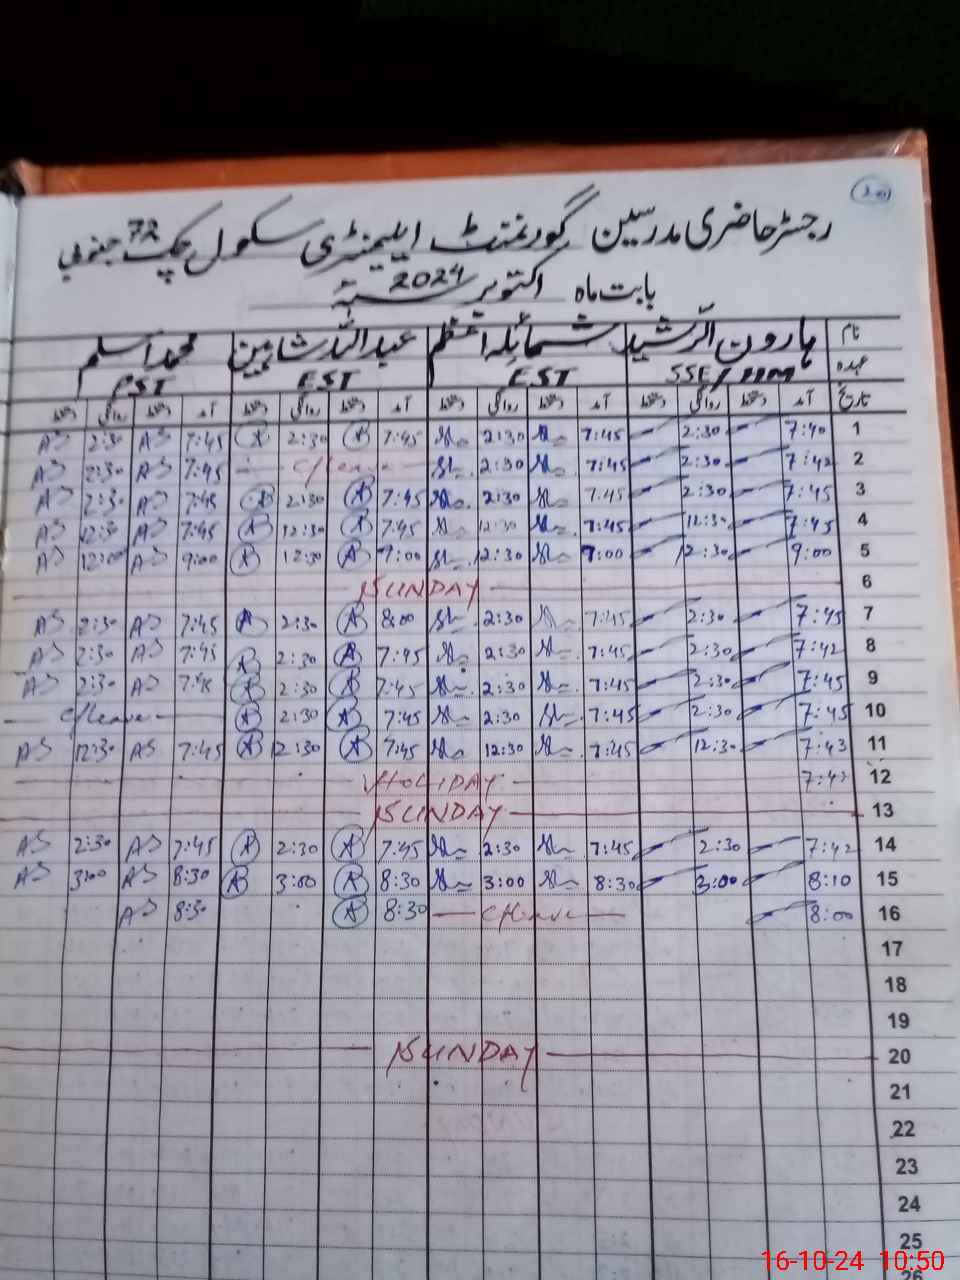 رجسٹر حاضری مدرسین گورنمنٹ ایلیمنٹری سکول چک 72 جنوبی
بابت ماہ اکتوبر 2024
نام ہارون الرشید شمائلہ اعظم عبداللہ شاہین محمد اسلم
عہدہ SSE/HM EST EST PST
تاریخ آمد دستخط روانگی دستخط آمد دستخط روانگی دستخط آمد دستخط روانگی دستخط آمد دستخط روانگی دستخط
1 7:40 2:30 7:45 2:30 7:45 2:30 7:45 AS 2:30 AS
2 7:42 2:30 7:45 2:30 C/leave 7:45 AS 2:30 AS
3 7:45 2:30 7:45 2:30 7:45 2:30 7:45 AS 2:30 AS
4 7:45 12:30 7:45 12:30 7:45 12:30 7:45 AS 12:30 AS
5 9:00 12:30 9:00 12:30 9:00 12:30 9:00 AS 12:00 AS
6 SUNDAY
7 7:45 2:30 7:45 2:30 8:00 2:30 7:45 AS 2:30 AS
8 7:42 2:30 7:45 2:30 7:45 2:30 7:45 AS 2:30 AS
9 7:45 2:30 7:45 2:30 7:45 2:30 7:45 AS 2:30 AS
10 7:45 2:30 7:45 2:30 7:45 2:30 C/leave
11 7:43 12:30 7:45 12:30 7:45 12:30 7:45 AS 12:30 AS
12 7:42 HOLIDAY
13 SUNDAY
14 7:42 2:30 7:45 2:30 7:45 2:30 7:45 AS 2:30 AS
15 8:10 3:00 8:30 3:00 8:30 3:00 8:30 AS 3:00 AS
16 8:00 C/leave 8:30 8:30 AS
17
18
19
20 SUNDAY
21
22
23
24
25
26
16-10-24 10:50